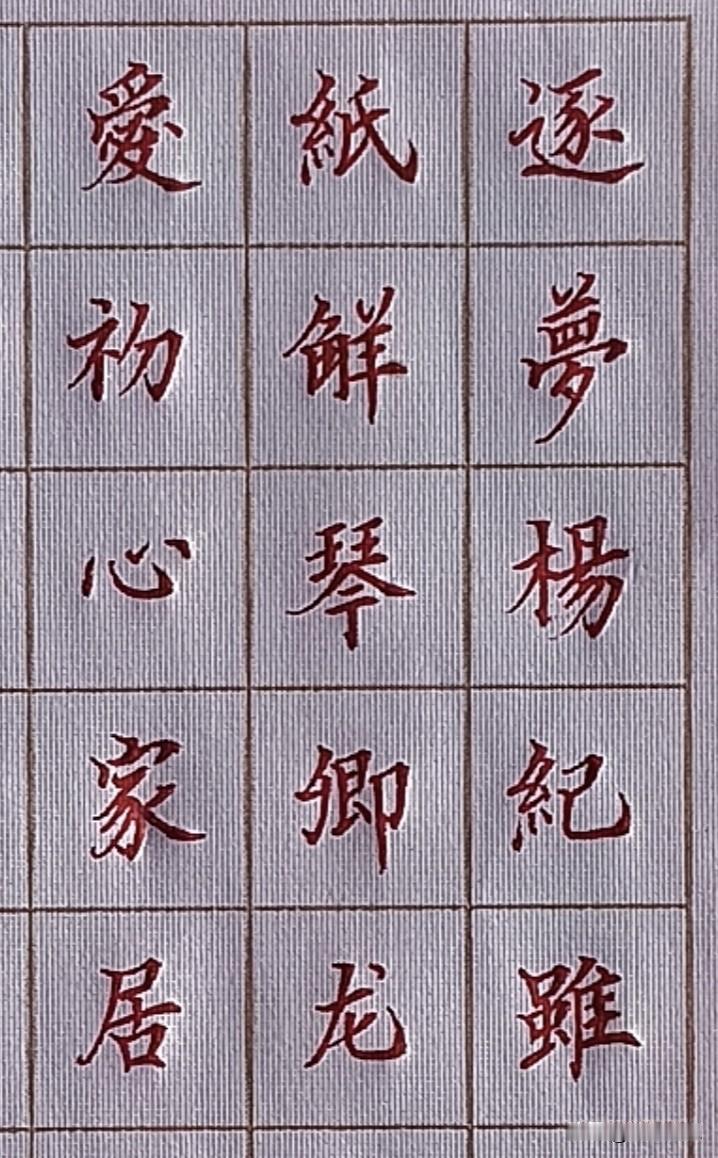 逐夢楊紀雖
紙觧琴卿龙
愛初心家居